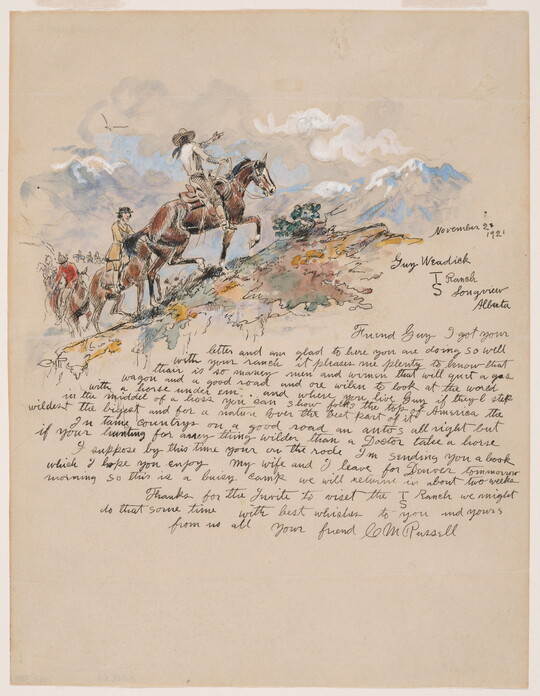 November 23
1921
Guy Weadick
T Ranch
S Longview
Alberta
Friend Guy I got your
letter and am glad to here you are doing so well
with your ranch it pleases me plenty to know that
thair is so maney men and wimen that will quit a gas
wagon and a good road and are wilen to look at the world
with a horse under em. and where you live Guy if they'l step
in the middel of a hoss you can show folks the top of America the
wildest the bigest and for a nature lover the best part of it
In tame countrys on a good road an autos all right but
if your hunting for aney thing wilder than a Doctor take a horse
I suppose by this time your on the rode I'm sending you a book
which I hope you enjoy My wife and I leave for Denver tommorow
morning so this is a buisy camp we will return in about two weeks
Thanks for the invite to viset the T Ranch we might
S
do that some time with best whishes to you and yours
from us all your friend C M Russell